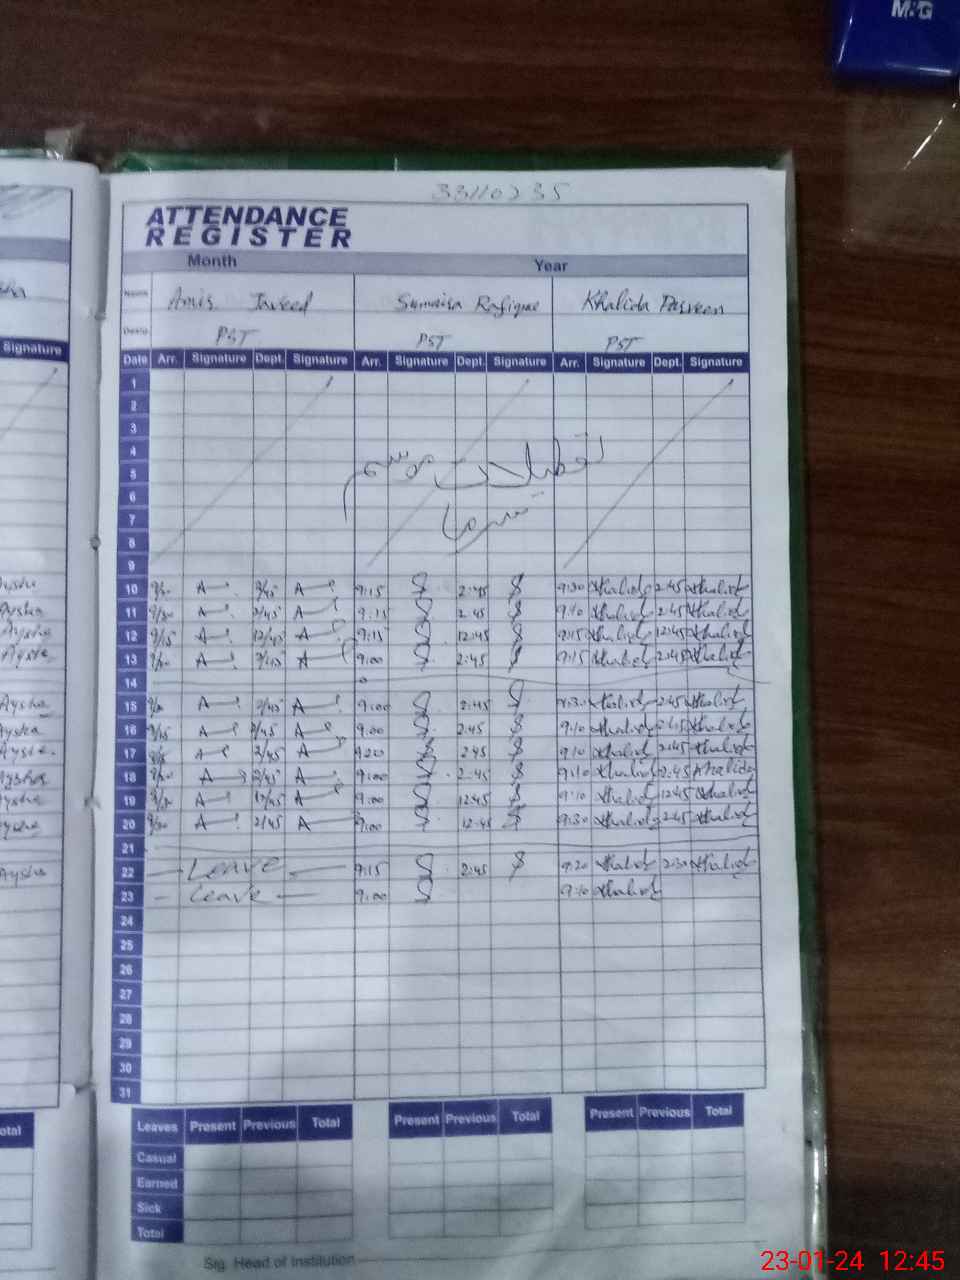 M&G
33110235
ATTENDANCE
REGISTER
Month Year
Name Javeed Sumaira Rafique Khalida Parveen
PST PST PST
Signature
Date Arr. Signature Dept. Signature Arr. Signature Dept. Signature Arr. Signature Dept. Signature
1
2
3
4
تعطیلات موسم
5
6
7
سرما
8
9
Aysha 10 9:15 2:45 9:30 Khalida 2:45 Khalida
Aysha 11 9:15 2:45 9:10 Khalida 2:45 Khalida
Aysha 12 9/15 12/45 9:15 12:45 9:15 Khalida 12:45 Khalida
Aysha 13 9:00 2:45 9:15 Khalida 2:45 Khalida
14
Aysha 15 2/45 9:00 2:45 Khalida 2:45 Khalida
Aysha 16 9/15 2/45 9:00 2:45 9:10 Khalida 2:45 Khalida
Aysha 17 2/45 2:45 9:10 Khalida 2:45 Khalida
Aysha 18 2/45 9:00 2:45 9:10 Khalida 2:45 Khalida
Aysha 19 12/45 9:00 12:45 9:10 Khalida 12:45 Khalida
Aysha 20 2/45 9:00 12:45 9:30 Khalida 2:45 Khalida
21
Aysha 22 Leave 9:15 2:45 9:20 Khalida 2:30 Khalida
23 Leave 9:00 9:10 Khalida
24
25
26
27
28
29
30
31
Leaves Present Previous Total Present Previous Total Present Previous Total
Casual
Earned
Sick
Total
Sig. Head of Institution
23-01-24 12:45